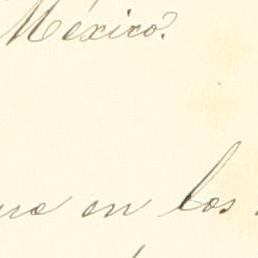 México.
en los